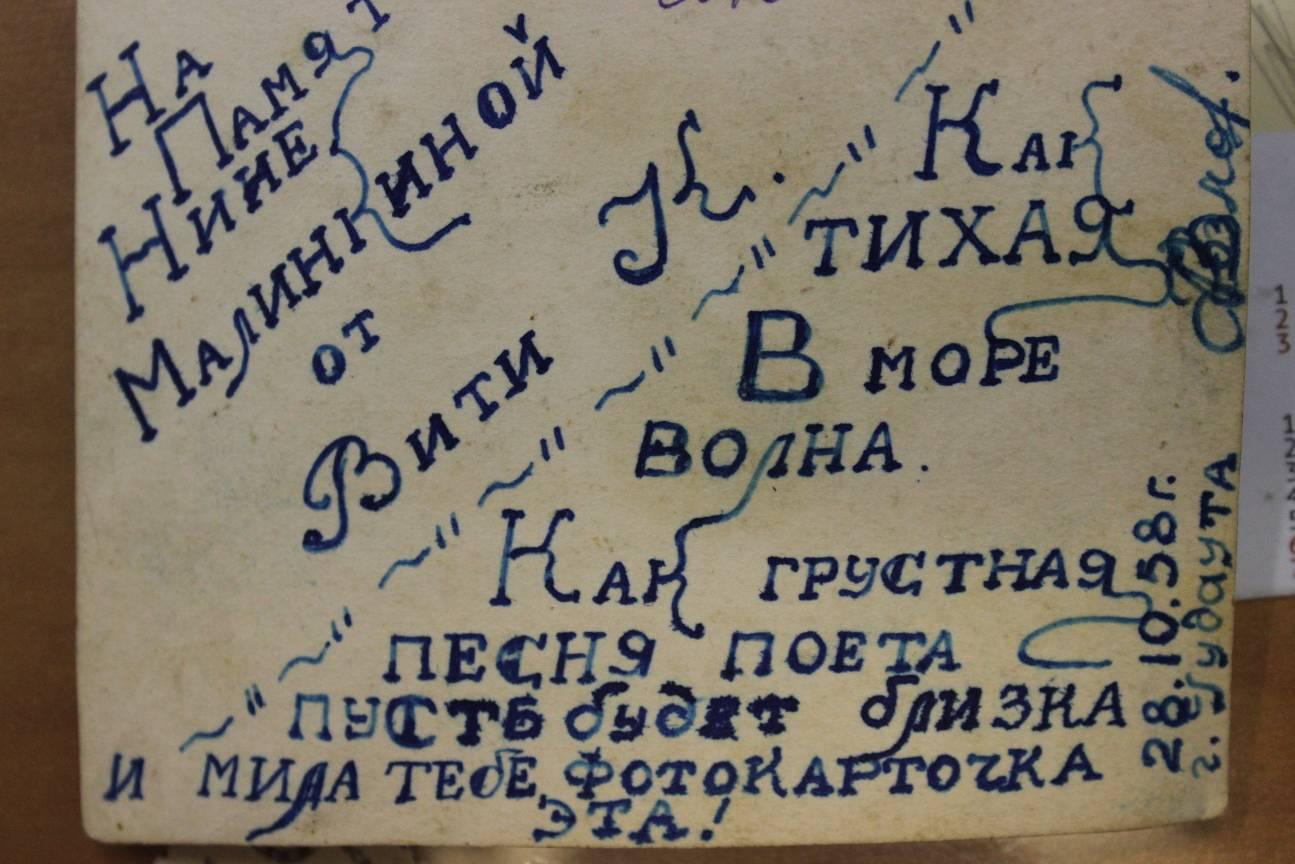 На
Памят
Нине
Малининой
от
Вити
К.
Как
тихая
В море
волна.
Как грустная
песня поета
пусть будет близка
и мила тебе фотокарточка
эта!
28.10.58 г.
г. Гудаута